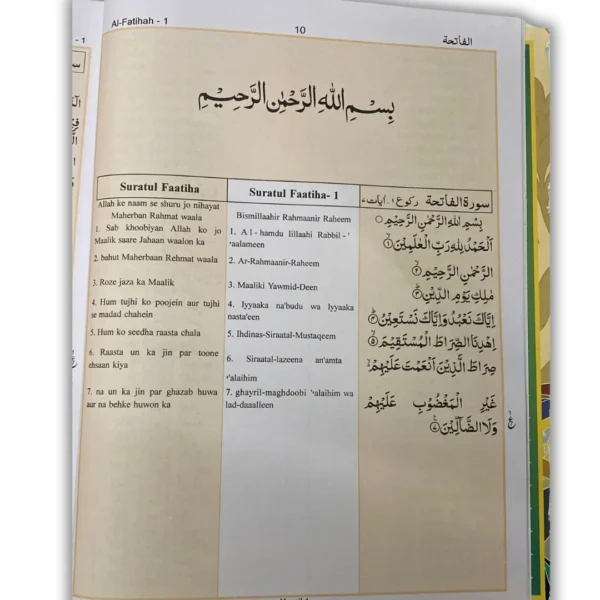 Al-Fatihah - 1
10
الفاتحة
بِسْمِ اللهِ الرَّحْمٰنِ الرَّحِيْمِ
Suratul Faatiha
Allah ke naam se shuru jo nihayat
Maherban Rahmat waala
1. Sab khoobiyan Allah ko jo
Maalik saare Jahaan waalon ka
2. bahut Maherbaan Rehmat waala
3. Roze jaza ka Maalik
4. Hum tujhi ko poojein aur tujhi
se madad chahein
5. Hum ko seedha raasta chala
6. Raasta un ka jin par toone
ehsaan kiya
7. na un ka jin par ghazab huwa
aur na behke huwon ka
Suratul Faatiha- 1
Bismillaahir Rahmaanir Raheem
1. A l - hamdu lillaahi Rabbil-'
'aalameen
2. Ar-Rahmaanir-Raheem
3. Maaliki Yawmid-Deen
4. Iyyaaka na'budu wa Iyyaaka
nasta'een
5. Ihdinas-Siraatal-Mustaqeem
6. Siraatal-lazeena an'amta
'alaihim
7. ghayril-maghdoobi 'alaihim wa
lad-daaalleen
سورة الفاتحة رکوع ۱، آیات ۷
بِسْمِ اللهِ الرَّحْمٰنِ الرَّحِيْمِ ○
اَلْحَمْدُ لِلّٰهِ رَبِّ الْعٰلَمِيْنَ ۱
الرَّحْمٰنِ الرَّحِيْمِ ۲
مٰلِكِ يَوْمِ الدِّيْنِ ۳
اِيَّاكَ نَعْبُدُ وَاِيَّاكَ نَسْتَعِيْنُ ۴
اِهْدِنَا الصِّرَاطَ الْمُسْتَقِيْمَ ۵
صِرَاطَ الَّذِيْنَ اَنْعَمْتَ عَلَيْهِمْ ۶
غَيْرِ الْمَغْضُوْبِ عَلَيْهِمْ
وَلَا الضَّآلِّيْنَ ۷